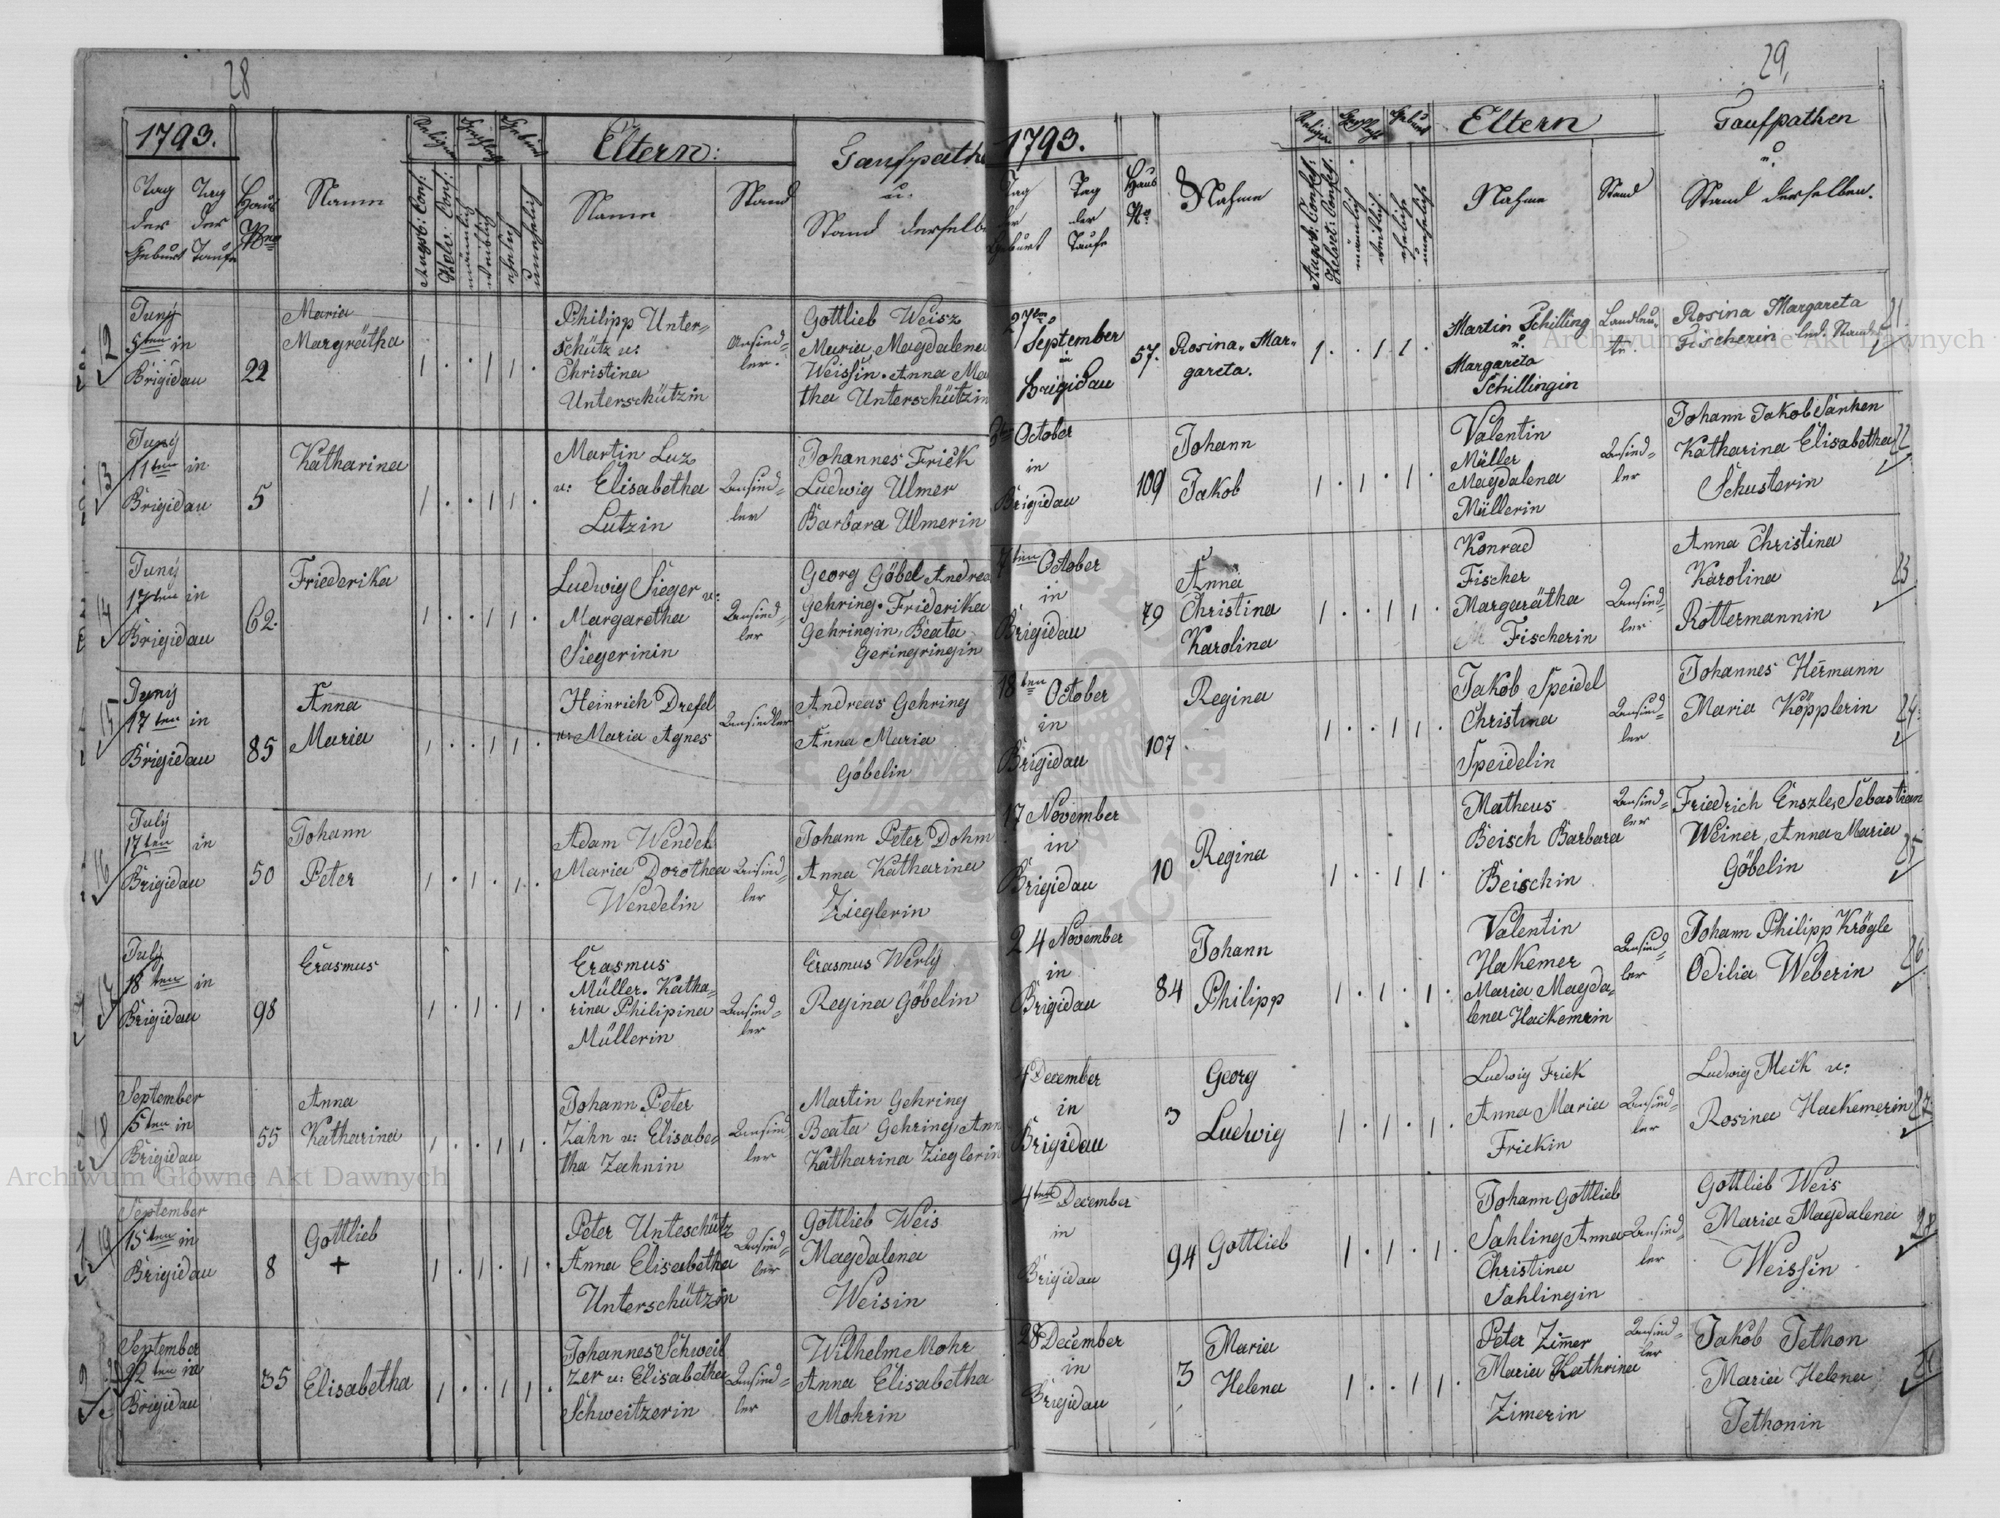 28
1793.
Tag
der
Geburt
Tag
der
Taufe
Haus
Nro
Namen
Religion
Geschlecht
Geburt
Augsb: Conf:
Helv: Conf:
männlich
weiblich
ehelich
unehelich
Eltern:
Namen
Stand
Taufpathe
u.
Stand derselb
12
Juny
5ten in
Brigidau
22
Maria
Margrätha
1 . . 1 1 .
Philipp Unter-
schütz u:
Christina
Unterschützin
Ansied-
ler.
Gottlieb Weisz
Maria Magdalena
Weissin. Anna Ma
tha Unterschützin
13
Juny
11ten in
Brigidau
5
Katharina
1 . . 1 1 .
Martin Luz
u: Elisabetha
Lutzin
Ansied-
ler
Johannes Frick
Ludwig Ulmer
Barbara Ulmerin
14
Juny
17ten in
Brigidau
62.
Friederika
1 . . 1 1 .
Ludwig Sieger u:
Margaretha
Siegerinin
Ansied-
ler
Georg Göbel Andrea
Gehring. Friderika
Gehringin, Beata
Geringringin
15
Juny
17ten in
Brigidau
85
Anna
Maria
1 . . 1 1 .
Heinrich Drefel
u: Maria Agnes
Ansiedler
Andreas Gehring
Anna Maria
Göbelin
16
July
17ten in
Brigidau
50
Johann
Peter
1 . 1 . 1 .
Adam Wendel
Maria Dorothea
Wendelin
Ansied-
ler
Johann Peter Dohm
Anna Katharina
Zieglerin
17
July
18ten in
Brigidau
98
Erasmus
1 . 1 . 1 .
Erasmus
Müller. Katha-
rina Philipina
Müllerin
Ansied-
ler
Erasmus Werly
Regina Göbelin
18
September
5ten in
Brigidau
55
Anna
Katharina
1 . . 1 1 .
Johann Peter
Zahn u: Elisabe-
tha Zahnin
Ansied
ler
Martin Gehring
Beata Gehring, Ann
Katharina Zieglerin
19
September
15ten in
Brigidau
8
Gottlieb
+
1 . 1 . 1 .
Peter Unteschütz
Anna Elisabetha
Unterschützin
Ansied-
ler
Gottlieb Weis
Magdalena
Weisin
20
September
22ten in
Brigidau
35
Elisabetha
1 . . 1 1 .
Johannes Schweit
zer u: Elisabetha
Schweitzerin
Ansied-
ler
Wilhelm Mohr
Anna Elisabetha
Mohrin
29,
1793.
Tag
der
Geburt
Tag
der
Taufe
Haus
No
Nahme
Religion
Geschlecht
Geburt
Augsb: Confes:
Helvet: Confes:
männlich
weiblich
eheliche
uneheliche
Eltern
Nahme
Stand
Taufpathen
u.
Stand derselben.
27ten
September
in
Brigidau
57.
Rosina Mar-
gareta.
1 . . 1 1 .
Martin Schilling
u.
Margareta
Schillingin
Landleu-
te.
Rosina Margareta
Fischerin led. Standes
21
October
in
Brigidau
109
Johann
Jakob
1 . 1 . 1 .
Valentin
Müller
Magdalena
Müllerin
Ansied-
ler
Johann Jakob Sanken
Katharina Elisabetha
Schusterin
22
7ten October
in
Brigidau
79
Anna
Christina
Karolina
1 . . 1 1 .
Konrad
Fischer
Margarätha
Fischerin
Ansied-
ler
Anna Christina
Karolina
Rottermannin
23
18ten October
in
Brigidau
107
Regina
1 . . 1 1 .
Jakob Speidel
Christina
Speidelin
Ansied-
ler
Johannes Hermann
Maria Köpplerin
24.
17 November
in
Brigidau
10
Regina
1 . . 1 1 .
Matheus
Beisch Barbara
Beischin
Ansied-
ler
Friedrich Enszle, Sebastian
Weiner, Anna Maria
Göbelin
25
24 November
in
Brigidau
84
Johann
Philipp
1 . 1 . 1 .
Valentin
Hakemer
Maria Magda-
lena Hackemrin
Ansied-
ler
Johann Philipp Krögle
Odilia Weberin
26
4 December
in
Brigidau
3
Georg
Ludwig
1 . 1 . 1 .
Ludwig Frick
Anna Maria
Frickin
Ansied-
ler
Ludwig Meck u:
Rosina Hackemerin
27.
4ten December
in
Brigidau
94
Gottlieb
1 . 1 . 1 .
Johann Gottlieb
Sahling Anna
Christina
Sahlingin
Ansied-
ler
Gottlieb Weis
Maria Magdalena
Weissin
28
28 December
in
Brigidau
3
Maria
Helena
1 . . 1 1 .
Peter Zimer
Maria Kathrina
Zimerin
Ansied-
ler
Jakob Tethon
Maria Helena
Tethonin
Archiwum Główne Akt Dawnych
Archiwum Główne Akt Dawnych